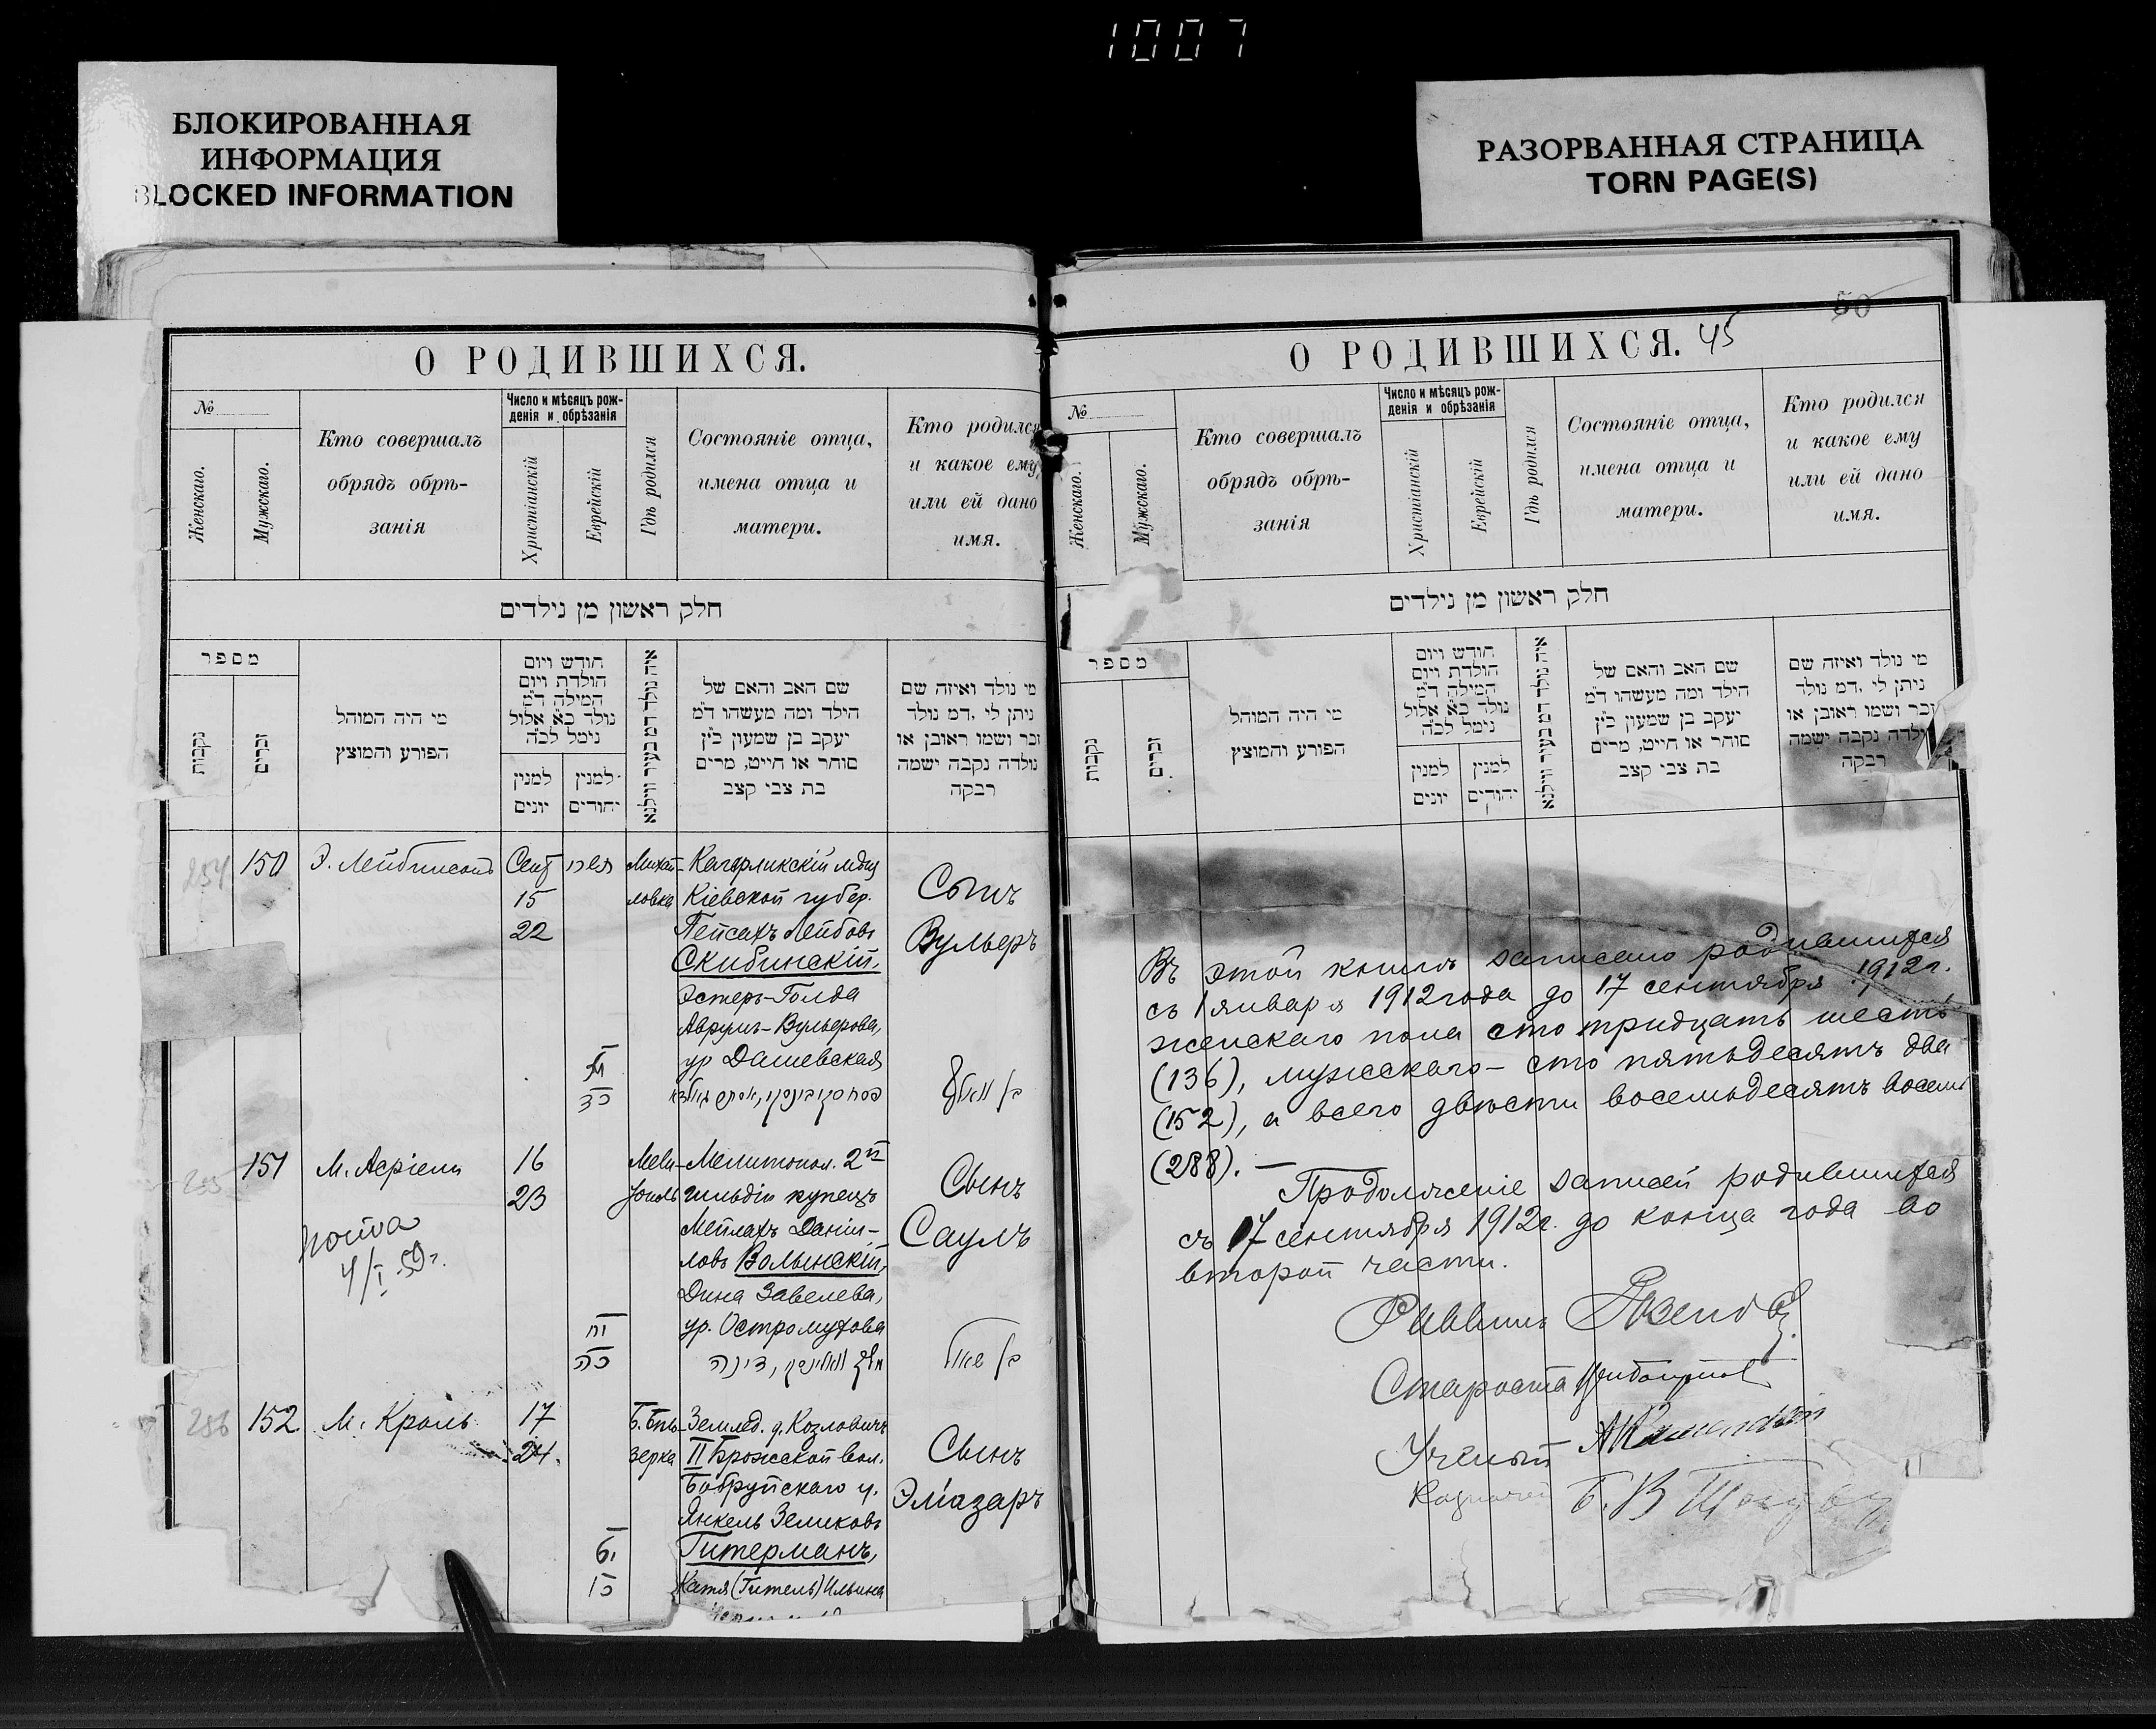 1007
БЛОКИРОВАННАЯ
ИНФОРМАЦИЯ
BLOCKED INFORMATION
РАЗОРВАННАЯ СТРАНИЦА
TORN PAGE(S)
О РОДИВШИХСЯ.
№
Женскаго.
Мужскаго.
Кто совершалъ
обрядъ обрѣ-
занія
Число и мѣсяцъ рож-
денія и обрѣзанія
Христіанскій
Еврейскій
Гдѣ родился
Состояніе отца,
имена отца и
матери.
Кто родился
и какое ему
или ей дано
имя.
חלק ראשון מן נילדים
מספר
נקבות
זכרים
מי היה המוהל
הפורע והמוצץ
חודש ויום
הולדת ויום
המילה ד"מ
נולד כ"א אלול
נימל לכ"ה
למנין
יונים
למנין
יהודים
איה נולד דמ בעיר ווילנא
שם האב והאם של
הילד ומה מעשהו ד"מ
יעקב בן שמעון כ"ץ
סוחר או חייט, מרים
בת צבי קצב
מי נולד ואיזה שם
ניתן לי, דמ נולד
זכר ושמו ראובן או
נולדה נקבה ישמה
רבקה
254
150
Э. Лейбинсонъ
Сент
15
22
תשרי
Михай-
ловка
Кагорликскій мѣщ
Кіевской губер.
Пейсахъ Лейбовъ
Скибинскій,
Эстеръ-Голда
Аврумъ-Вульферова,
ур Дашевская
Сынъ
Вульфръ
151
М. Асріелъ
16
23
Мели-
тополь
Мелитопол. 2й
гильдіи купецъ
Мейлахъ Даніи-
ловъ Волынскій,
Дина Завелева,
ур. Остромухова
Сынъ
Саулъ
כה
דינה
копия
4/I 59г.
286
152
М. Кроль
17
24.
Б. Бѣло-
зерка
Землед. д. Козловичъ
II Брожской вол.
Бобруйскаго у.
Янкель Зеликовъ
Гитерманъ,
Катя (Гитель) Ильина
Сынъ
Эліазаръ
О РОДИВШИХСЯ. 45
50
№
Женскаго.
Мужскаго.
Кто совершалъ
обрядъ обрѣ-
занія
Число и мѣсяцъ рож-
денія и обрѣзанія
Христіанскій
Еврейскій
Гдѣ родился
Состояніе отца,
имена отца и
матери.
Кто родился
и какое ему
или ей дано
имя.
חלק ראשון מן נילדים
מספר
נקבות
זכרים
מי היה המוהל
הפורע והמוצץ
חודש ויום
הולדת ויום
המילה ד"מ
נולד כ"א אלול
נימל לכ"ה
למנין
יונים
למנין
יהודים
איה נולד דמ בעיר ווילנא
שם האב והאם של
הילד ומה מעשהו ד"מ
יעקב בן שמעון כ"ץ
סוחר או חייט, מרים
בת צבי קצב
מי נולד ואיזה שם
ניתן לי, דמ נולד
זכר ושמו ראובן או
נולדה נקבה ישמה
רבקה
Въ этой книгѣ записано родившихся
съ 1 января 1912 года до 17 сентября 1912 г.
женскаго пола сто тридцать шесть
(136), мужскаго - сто пятьдесятъ два
(152), а всего двѣсти восемьдесятъ восемь
(288). -
Продолженіе записей родившихся
съ 17 сентября 1912 г. до конца года во
второй части.
Раввинъ
Староста
Ученый
Казначей Б. В